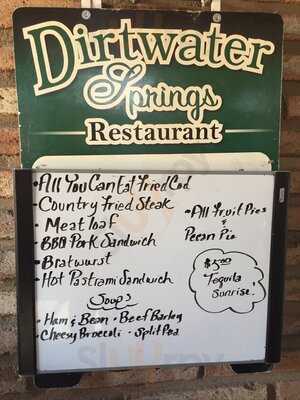 Dirtwater
Springs
Restaurant
• All You Can Eat Fried Cod
• Country Fried Steak
• Meat loaf
• BBQ Pork Sandwich
• Bratwurst
• Hot Pastrami Sandwich
• All Fruit Pies &
Pecan Pie
$5.00
Tequila
Sunrise
Soups
• Ham & Bean • Beef Barley
• Cheesy Broccoli • Split Pea